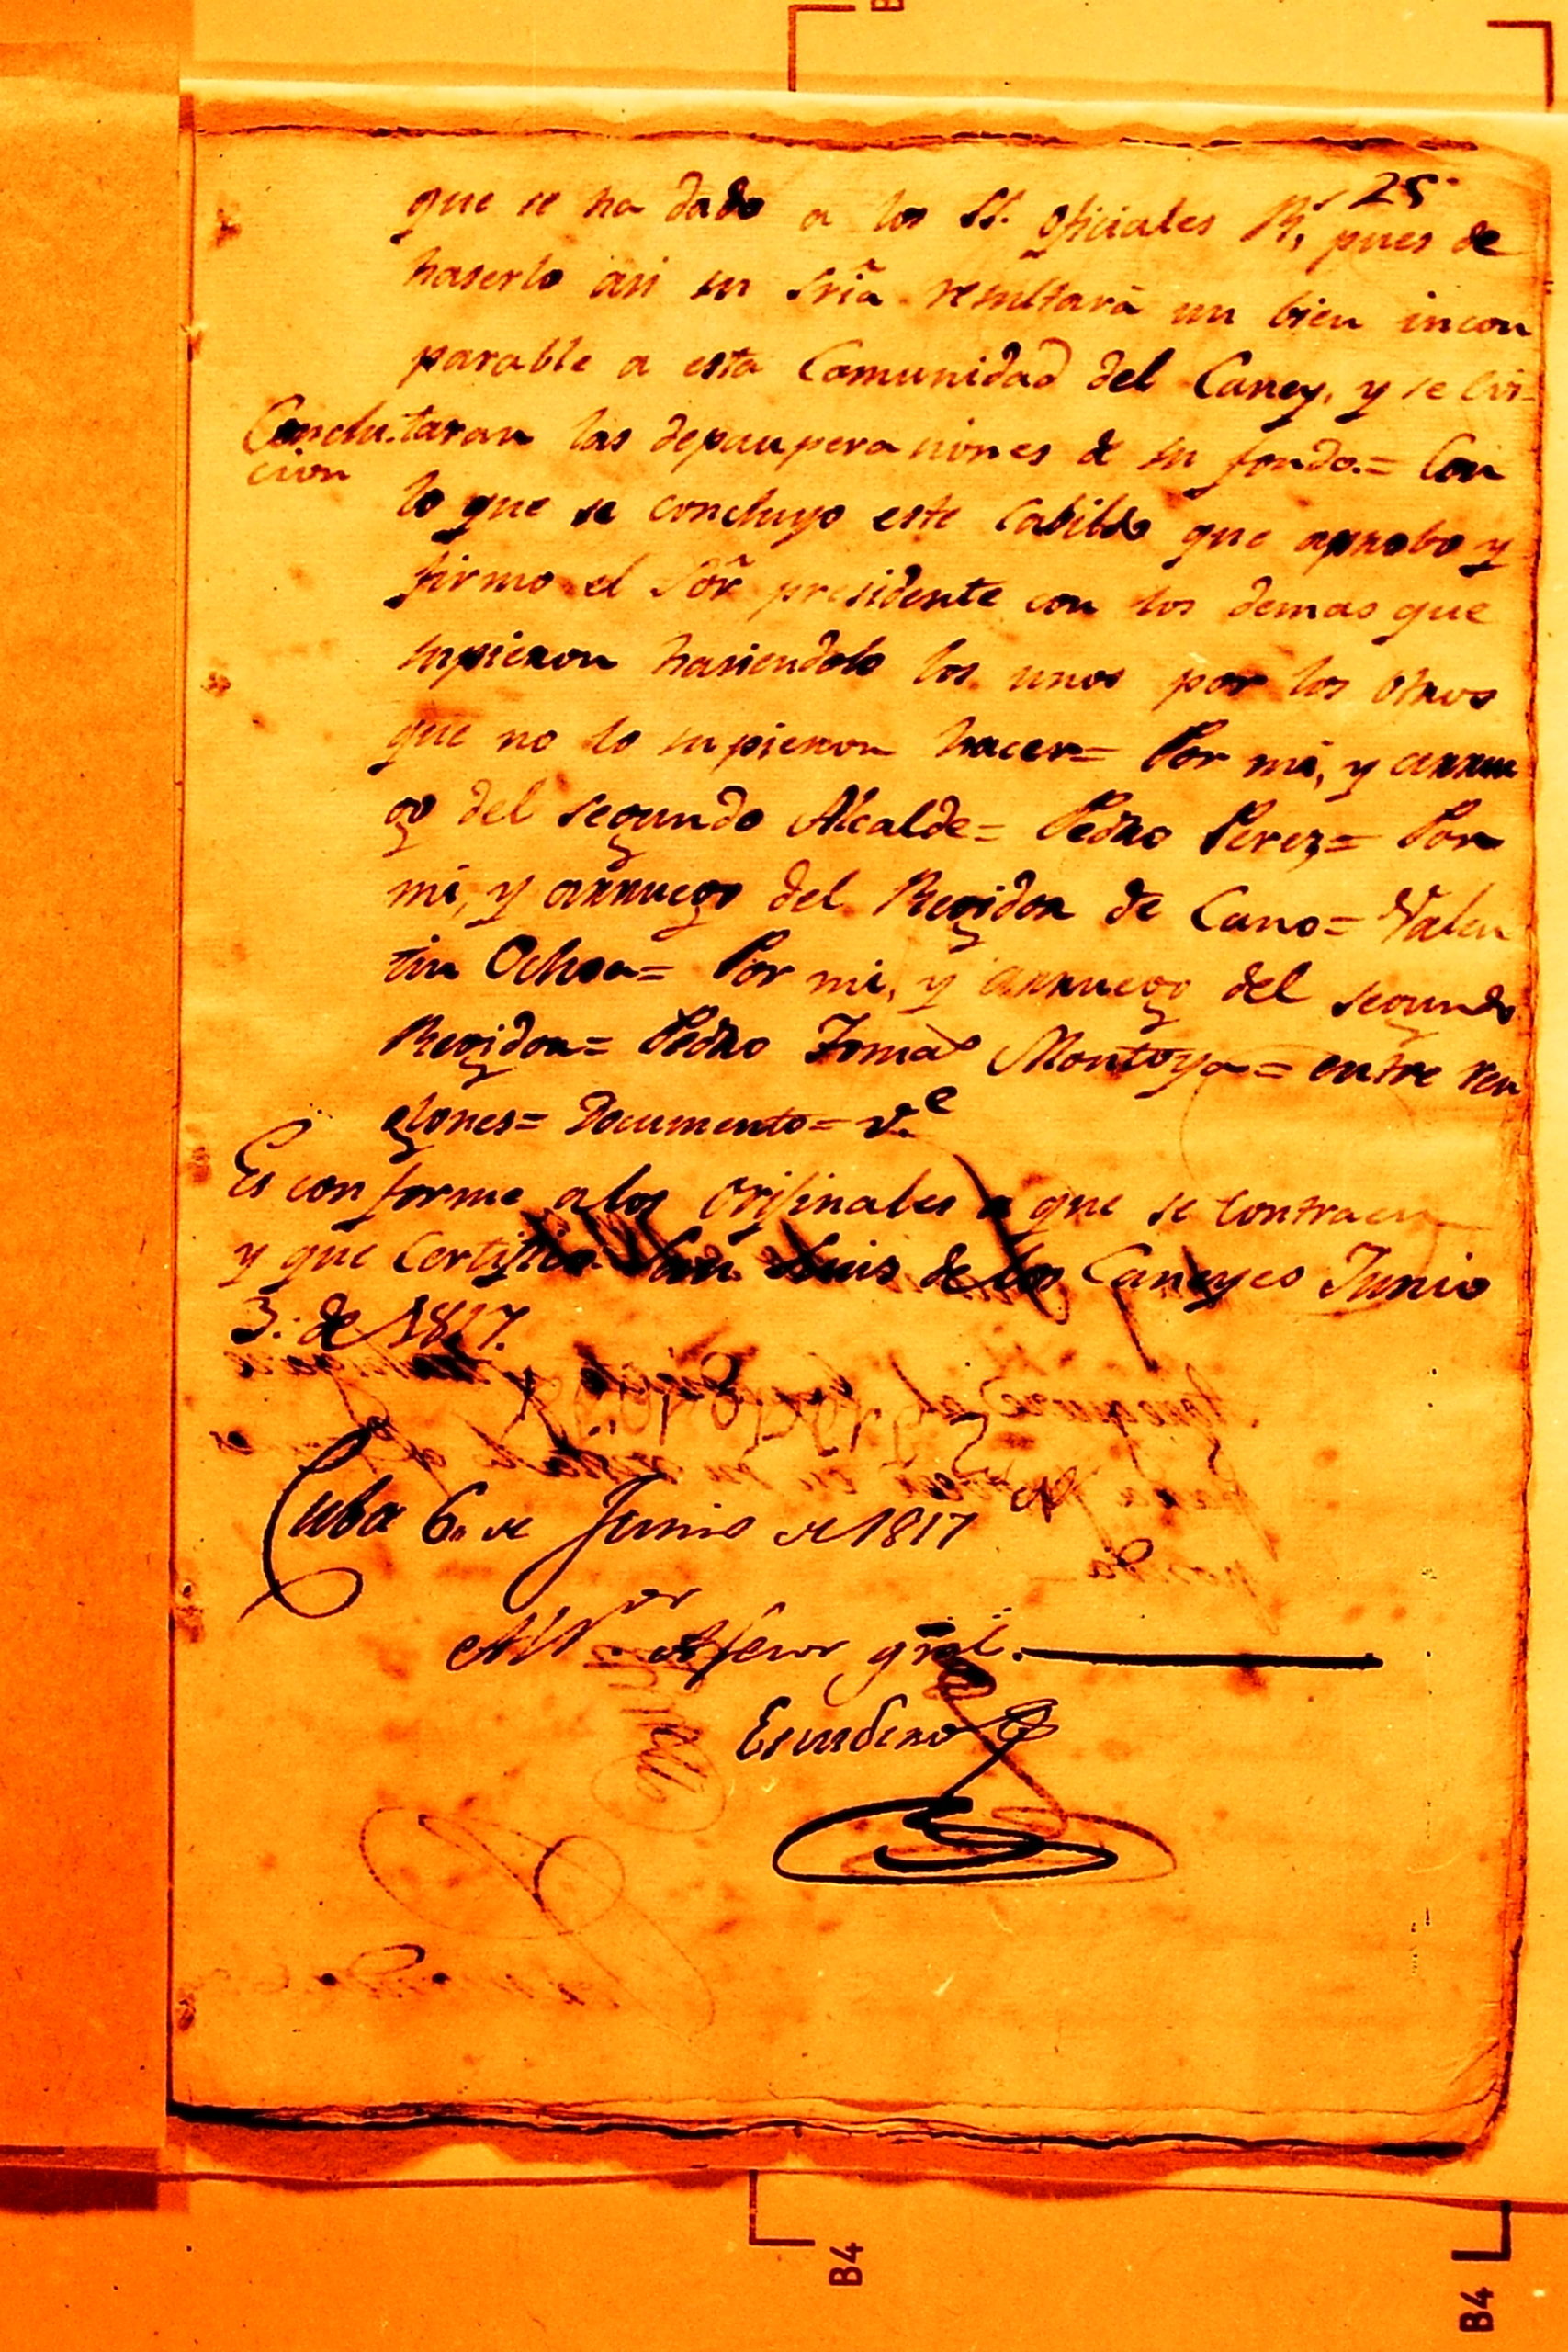 25
que se ha dado a los SS. oficiales R.s, pues de
haserlo asi su Sria resultará un bien incon
parable a esta Comunidad del Caney, y se evi-
Conclu-
cion
taran las depauperaciones de su fondo.= Con
lo que se concluyo este Cabildo que aprobo y
firmo el Sor presidente con los demas que
supieron hasiendolo los unos por los otros
que no lo supieron hacer= Por mi, y arrue
go del segundo Alcalde= Pedro Perez= Por
mi, y arruego del Regidor de Cano= Valen
tin Ochoa= Por mi, y arruego del segundo
Regidor= Pedro Tomas Montoya= entre ren
glones= Documento= v.e
Es conforme a los Orijinales a que se contraen
y que Certifico San Luis de los Caneyes Junio
3. de 1817.
Cuba 6. de Junio de 1817
Al Sor Asesor gral.
Escudero
B4
B4